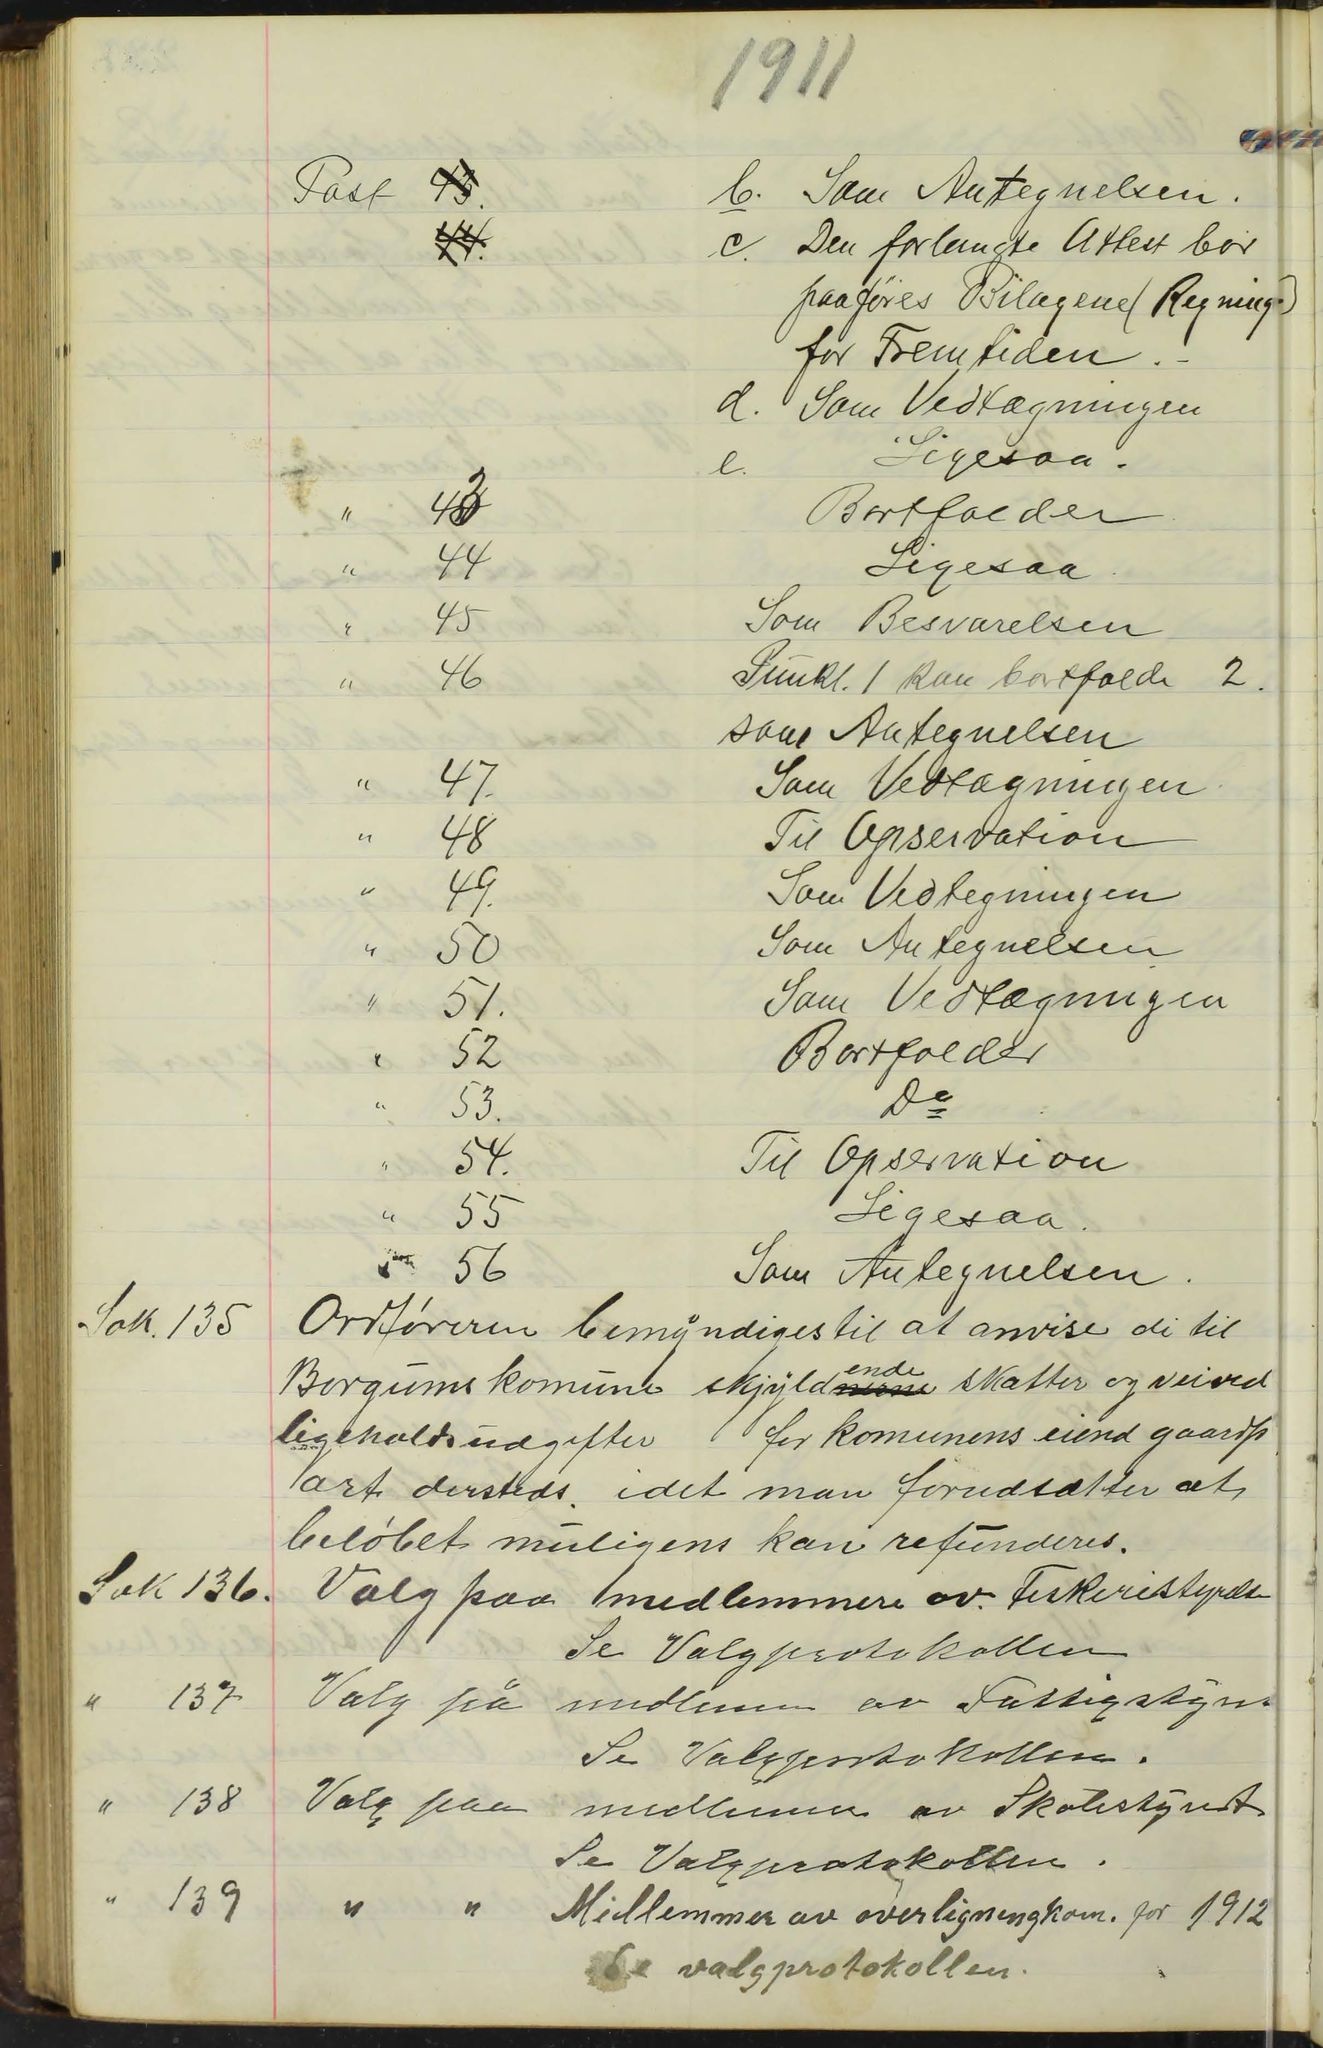 1911
Post 43. b. Som Antegnelsen.
44. c. Den forlangte Attest bør
paaføres Bilagene (Regning)
for Fremtiden. -
d. Som Vedtægningen
e. Ligesaa.
" 43 Bortfalder
" 44 Ligesaa
" 45 Som Besvarelsen
" 46 Punkt. 1 kan bortfalde 2.
som Antegnelsen
" 47. Som Vedtægningen
" 48 Til Opservation
" 49. Som Vedtegningen
" 50 Som Antegnelsen
" 51. Som Vedtægningen
" 52 Bortfalder
" 53. Do
" 54. Til Opservation
" 55 Ligesaa.
" 56 Som Antegnelsen.
Sak. 135 Ordføreren bemyndiges til at anvise di til
Borgums komune skjyldende skatter og veived
ligeholdsudgifter for komunens eiend gaardsp
art dersteds. idet man forudsætter at
beløbet muligens kan refunderes.
Sak 136. Valg paa medlemmere av Fiskeristyrelse
Se Valgprotokollen
" 137 Valg på medlemm av Fattigstyre
Se Valgprotokollen.
" 138 Valg paa medlemmer av Skolestyret
Se Valgprotokollen.
" 139 " " Medlemmer av overligningkom. for 1912
Se valgprotokollen.